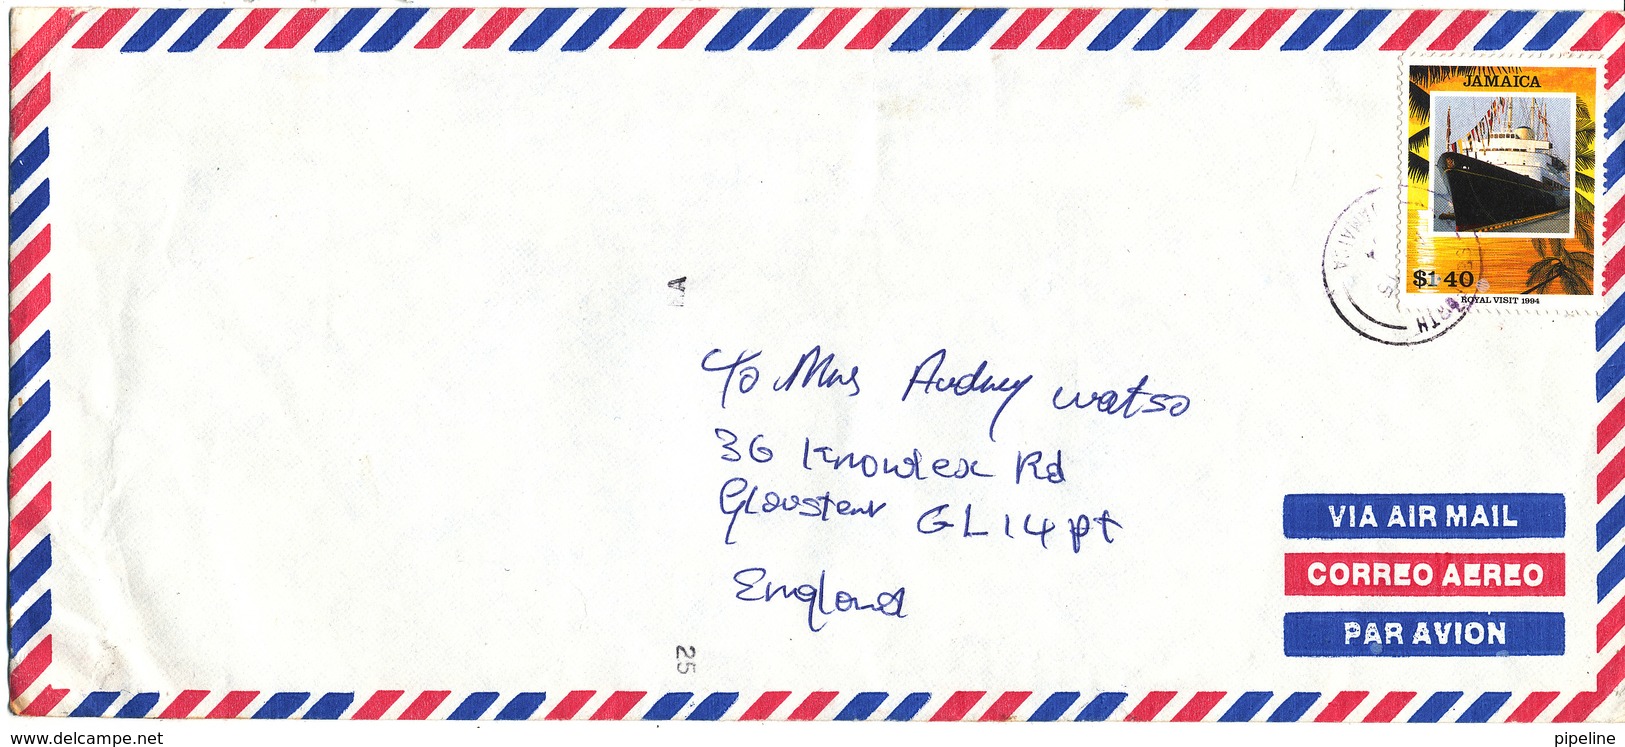 JAMAICA
$1·40
ROYAL VISIT 1994
JAMAICA
To Mrs Audrey watso
36 Knowlex Rd
Glouster GL14pt
England
VIA AIR MAIL
CORREO AEREO
PAR AVION
25
www.delcampe.net
pipeline